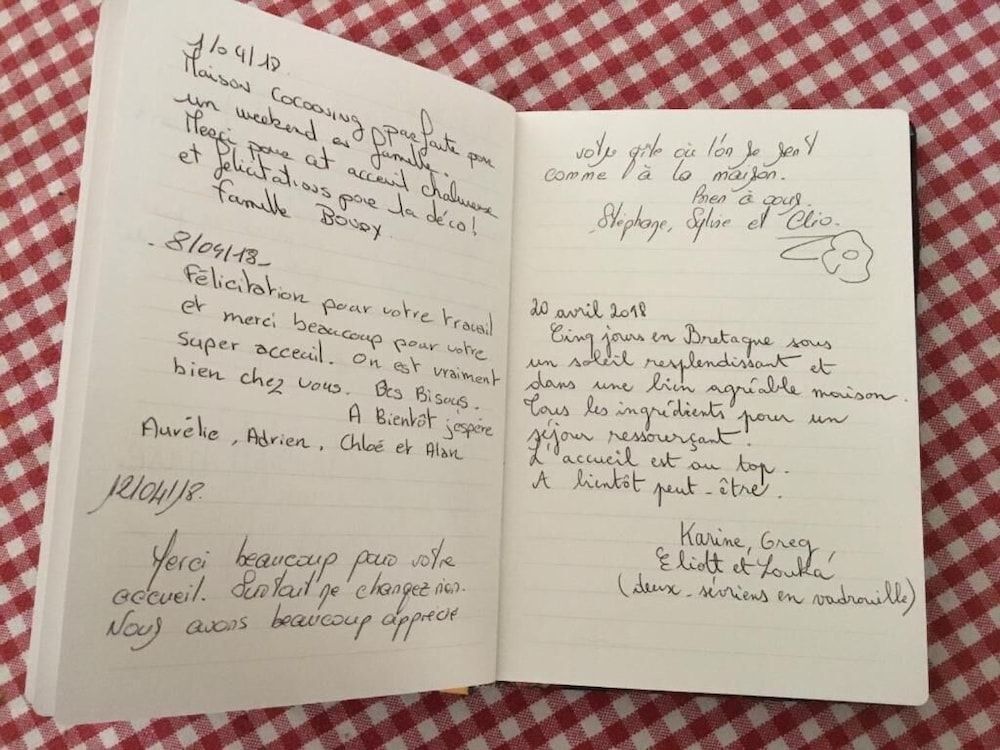 1/04/18.
Maison cocooning parfaite pour
un weekend en famille.
Merci pour cet acceuil chaleureux
et félicitations pour la déco!
Famille
8/04/18-
Félicitation pour votre travail
et merci beaucoup pour votre
super acceuil. On est vraiment
bien chez vous. Bisous.
A Bientôt j'espère
Aurélie, Adrien, Chloé et Alan
12/04/18.
Merci beaucoup pour votre
accueil. Surtout ne changez rien.
Nous avons beaucoup apprécié
votre gîte où l'on se sent
comme à la maison.
Bien à vous.
Stéphane, Sylvie et Clio.
20 avril 2018
Cinq jours en Bretagne sous
un soleil resplendissant et
dans une bien agréable maison.
Tous les ingrédients pour un
séjour ressourçant.
L'accueil est au top.
A bientôt peut-être.
Karine, Greg,
Eliott et Louka
(deux-sévriens en vadrouille)